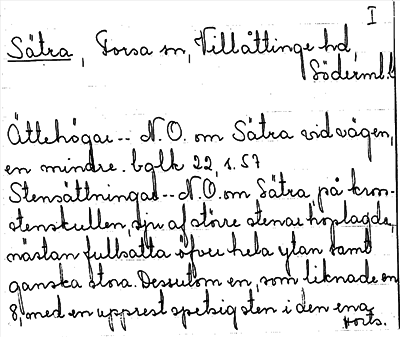 I
Sätra, Forsa sn, Villåttinge hd,
Söderml. l.
Ättehögar -- N.O. om Sätra vid vägen,
en mindre. bglk 22, s. 57
Stensättningar -- N.O. om Sätra på kron-
stenskullen, sju af större stenar hoplagda,
nästan fullsatta öfver hela ytan samt
ganska stora. Dessutom en, som liknade en
8, med en upprest spetsig sten i den ena
forts.